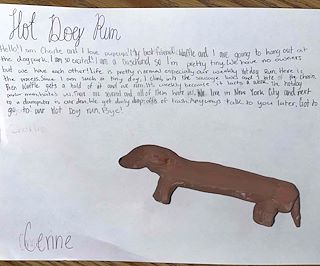 Hot Dog Run
Hello! I am Charlie and I love pupcups! My best friend Waffle and I are going to hang out at
the dog park. I am so excited! I am a Daschund so I'm pretty tiny. We have no owners
but we have each other! Life is pretty normal especially our weekly hotdog Run. Here is
the process. Since I am such a tiny dog, I climb into the sausage and I bite of the chain.
Then Waffle gets a hold of it and we run. It's weekly because it lasts a week. The hotdog
hates us. all of them hate us. We live in New York City and next
to a dumpster is our den. We get daily drop offs of trash. Anyways talk to you later, Got to
go to our Hot Dog run. Bye!
Charlie
Cenne